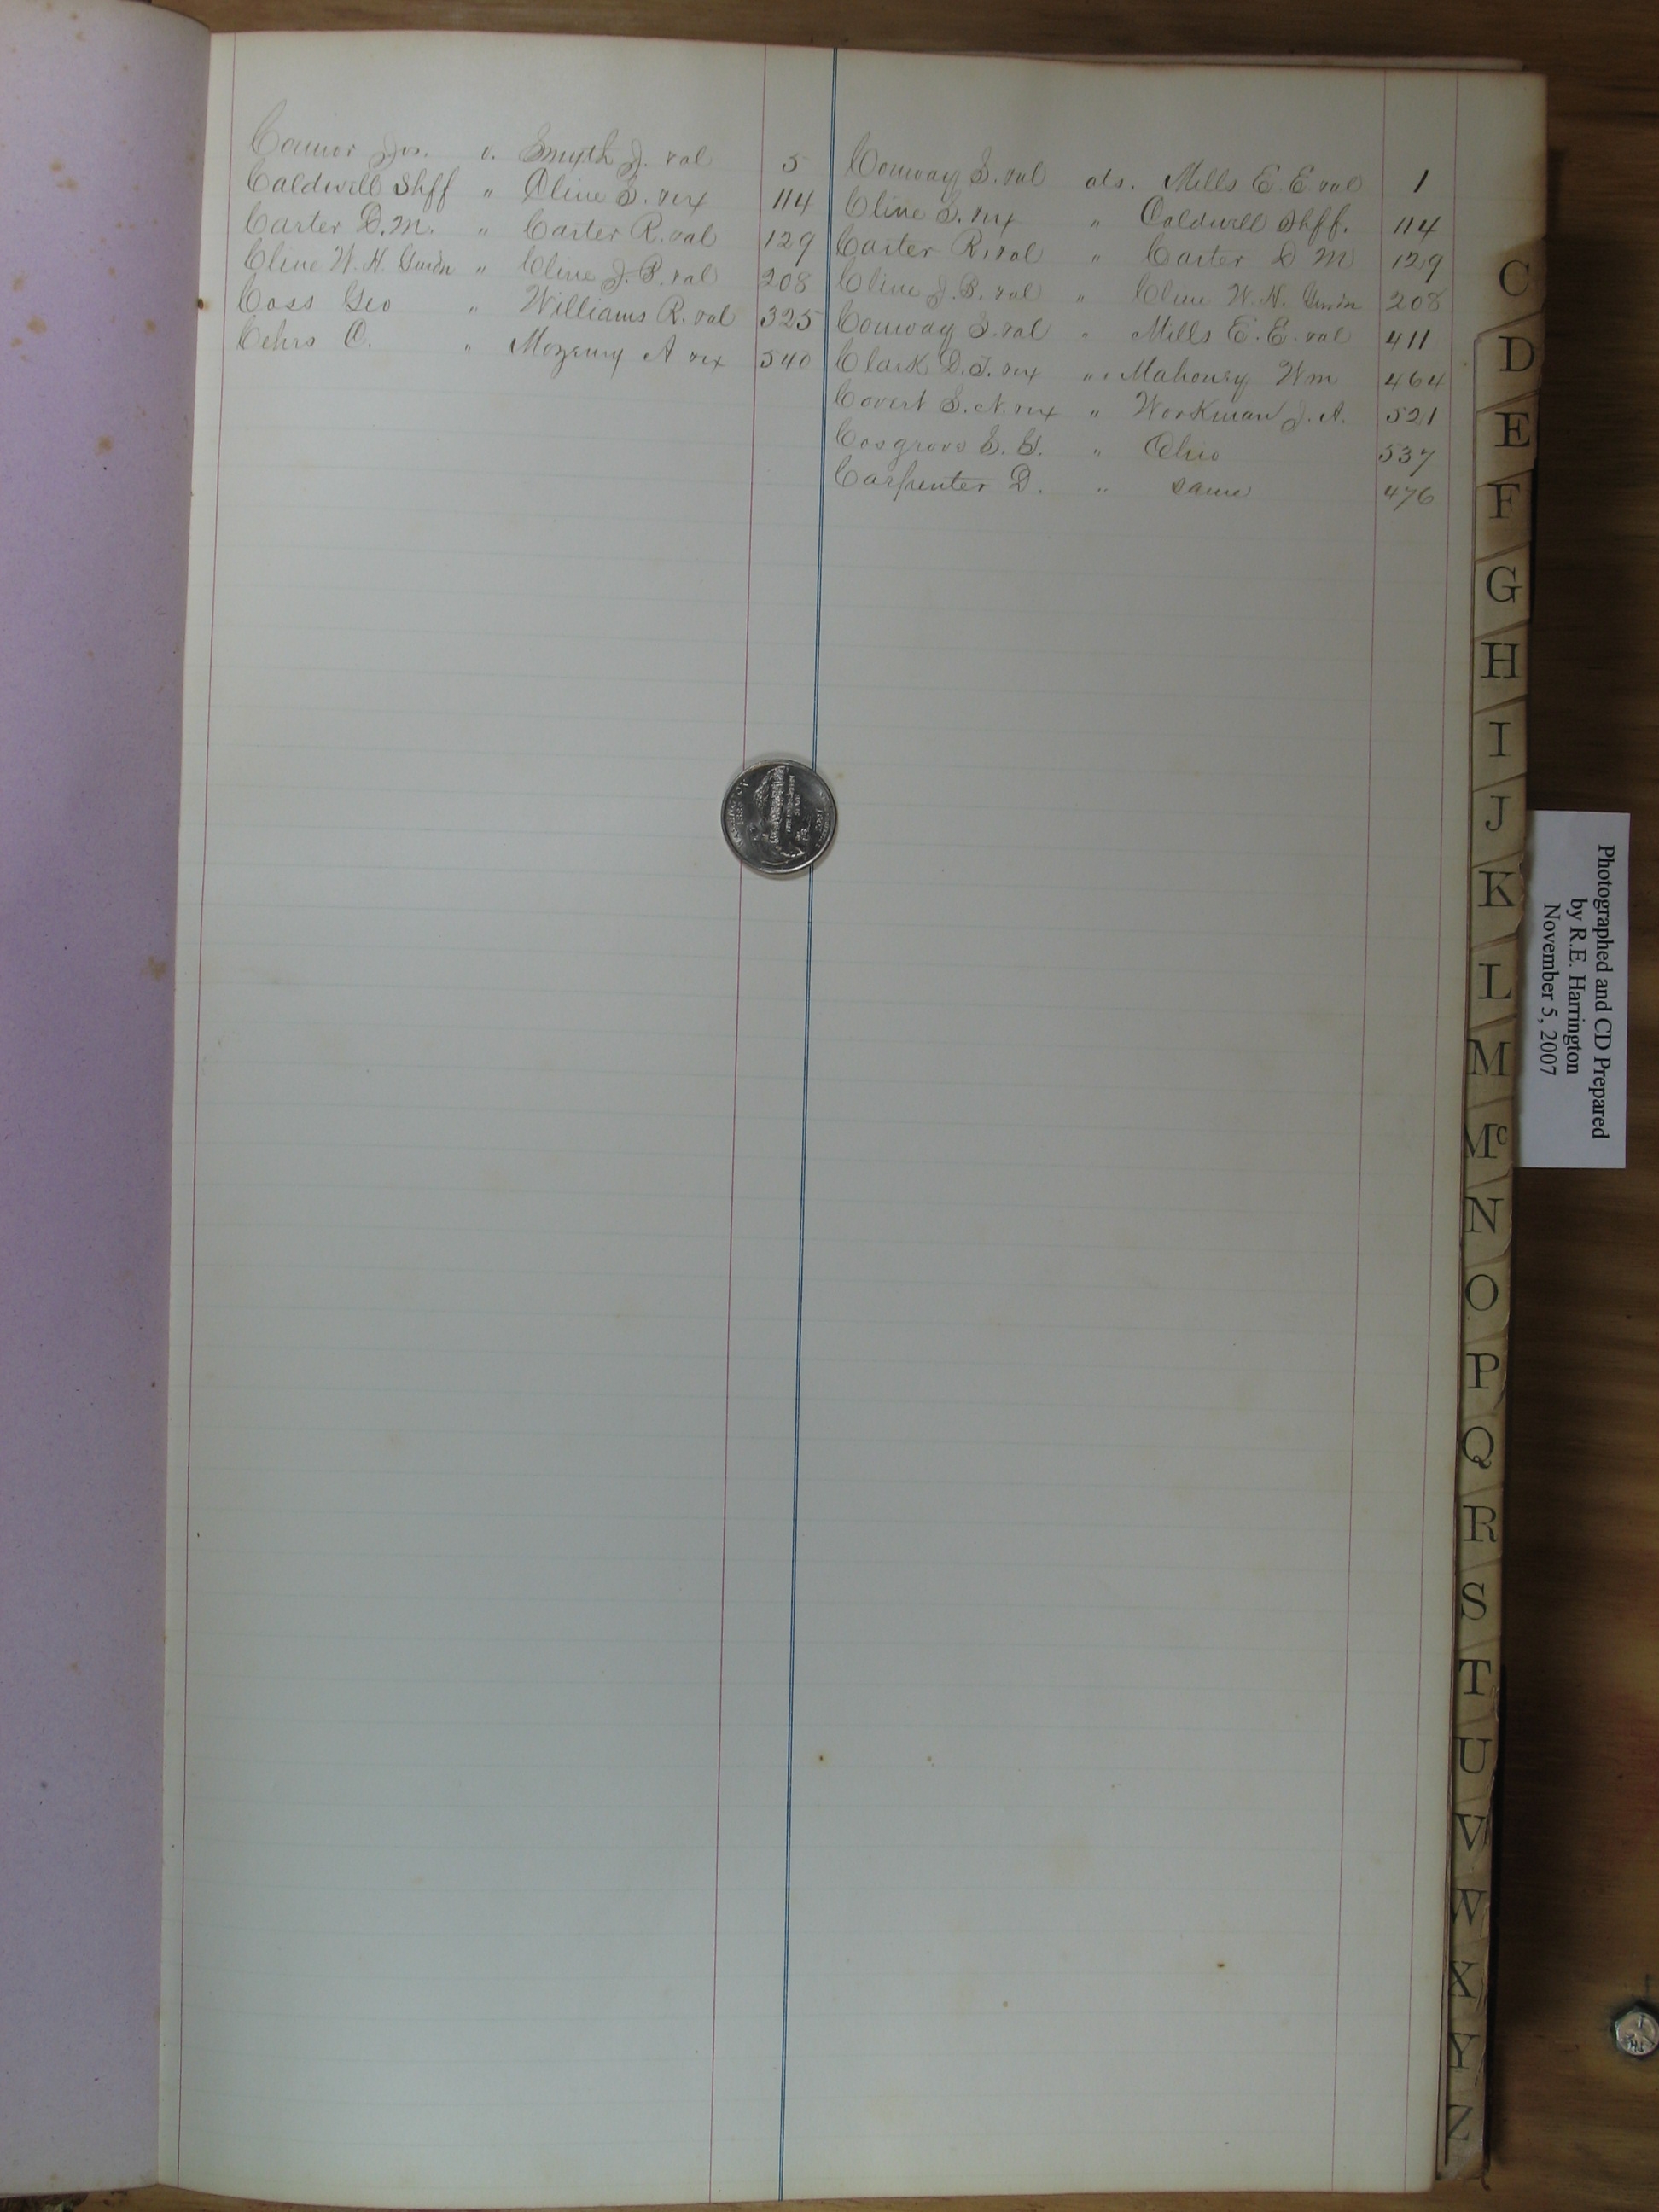 Connor Jos. v. Smyth J. et al 5
Caldwell Shff " Cline S. et ux 114
Carter D.M. " Carter R. et al 129
Cline W.H. Guidn " Cline J.B. et al 208
Coss Geo " Williams R. et al 325
Cehrs C. " Mozeny A et ux 540
Conway S. et al ats. Mills E.E. et al 1
Cline S. et ux " Caldwell Shff. 114
Carter R. et al " Carter D M 129
Cline J.B. et al " Cline W.H. Guidn 208
Conway S. et al " Mills E.E. et al 411
Clark D.T. et ux " Mahoney Wm 464
Covert S.N. et ux " Workman J.A. 521
Cosgrove S.G. " Ohio 537
Carpenter D. " same 476
C
D
E
F
G
H
I
J
K
L
M
Mc
N
O
P
Q
R
S
T
U
V
W
X
Y
Z
Photographed and CD Prepared
by R.E. Harrington
November 5, 2007